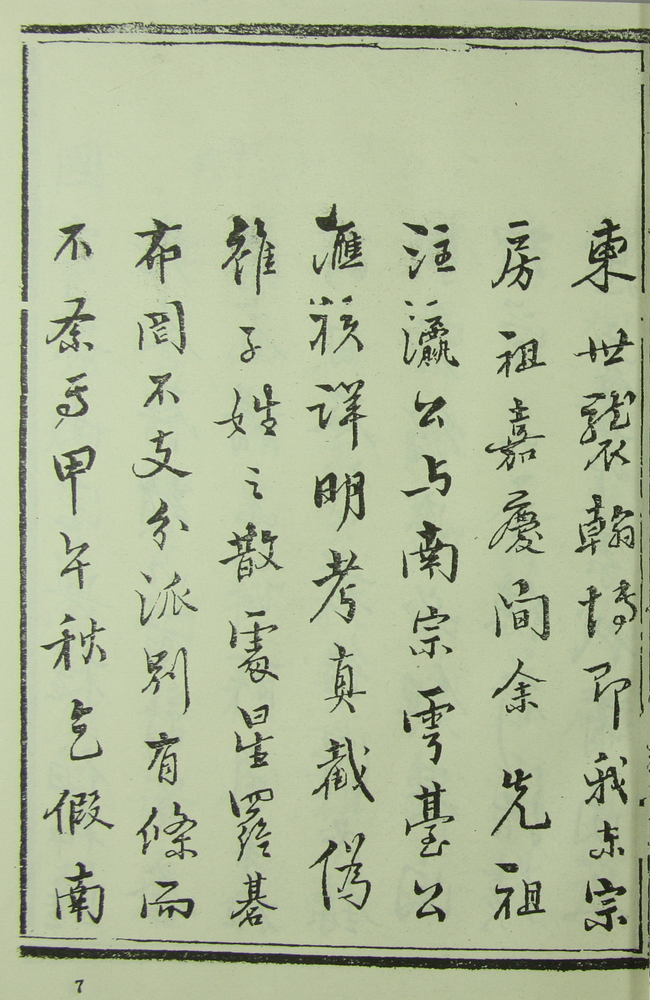 東世襲翰博即我东宗
房祖嘉慶间余先祖
注瀛公与南宗雩臺公
滙核詳明考真截偽
雖子姓之散處星羅碁
布罔不支分派别有條而
不紊焉甲午秋乞假南
7